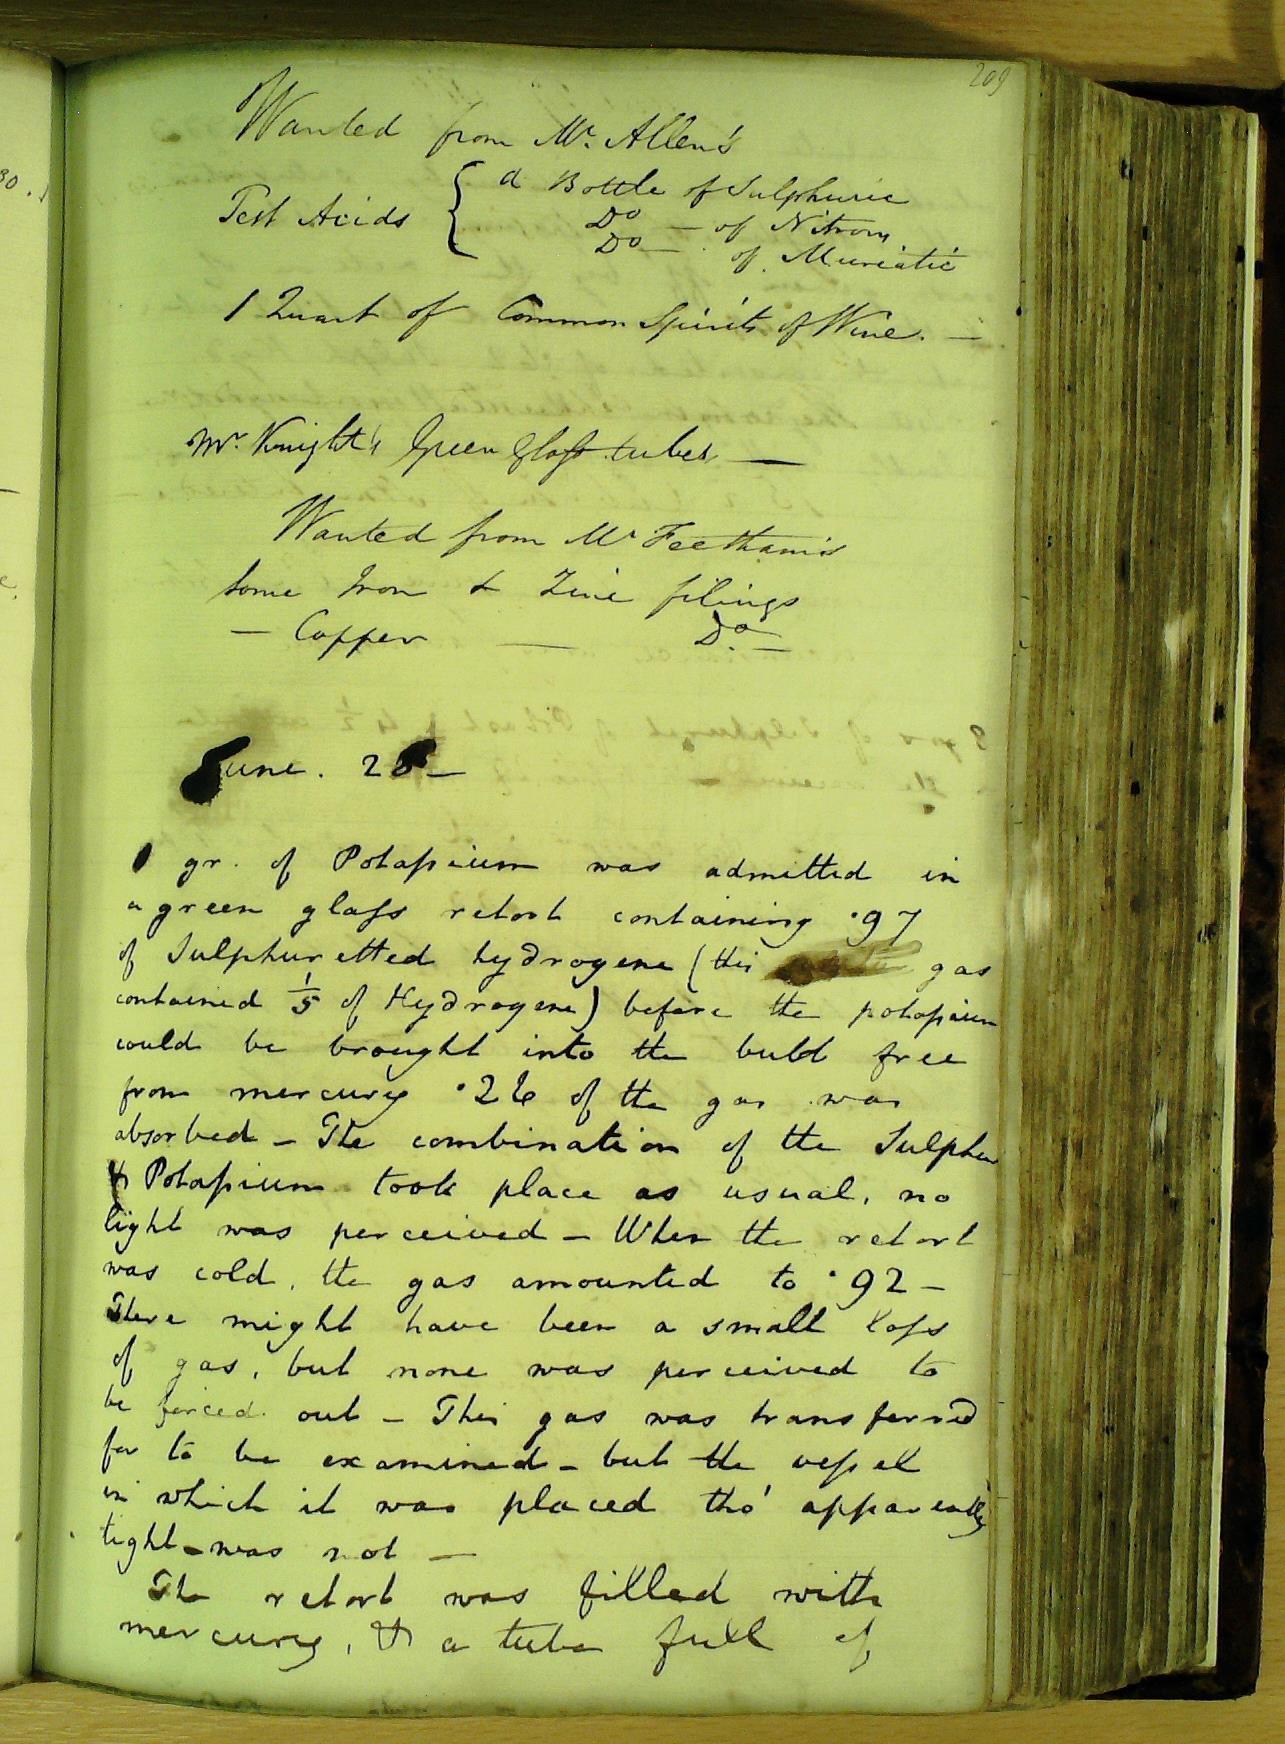 209
Wanted from Mr. Allen's
Test Acids { a Bottle of Sulphuric
Do — of Nitrous
Do — of Muriatic
1 Quart of Common Spirits of Wine. —
Mr. Knight's Green Glass tubes —
Wanted from Mr Feetham's
Some Iron & Zinc filings
— Copper — Do. —
June. 28 —
1 gr. of Potassium was admitted in
a green glass retort containing .97
of Sulphuretted hydrogene (this gas
contained 1/5 of Hydrogene) before the potassium
could be brought into the bulb free
from mercury .26 of the gas was
absorbed — The combination of the Sulphur
& Potassium took place as usual, no
light was perceived — When the retort
was cold, the gas amounted to .92 —
There might have been a small loss
of gas, but none was perceived to
be forced out — This gas was transferred
for to be examined — but the vessel
in which it was placed tho' apparently
tight — was not —
The retort was filled with
mercury, & a tube full of